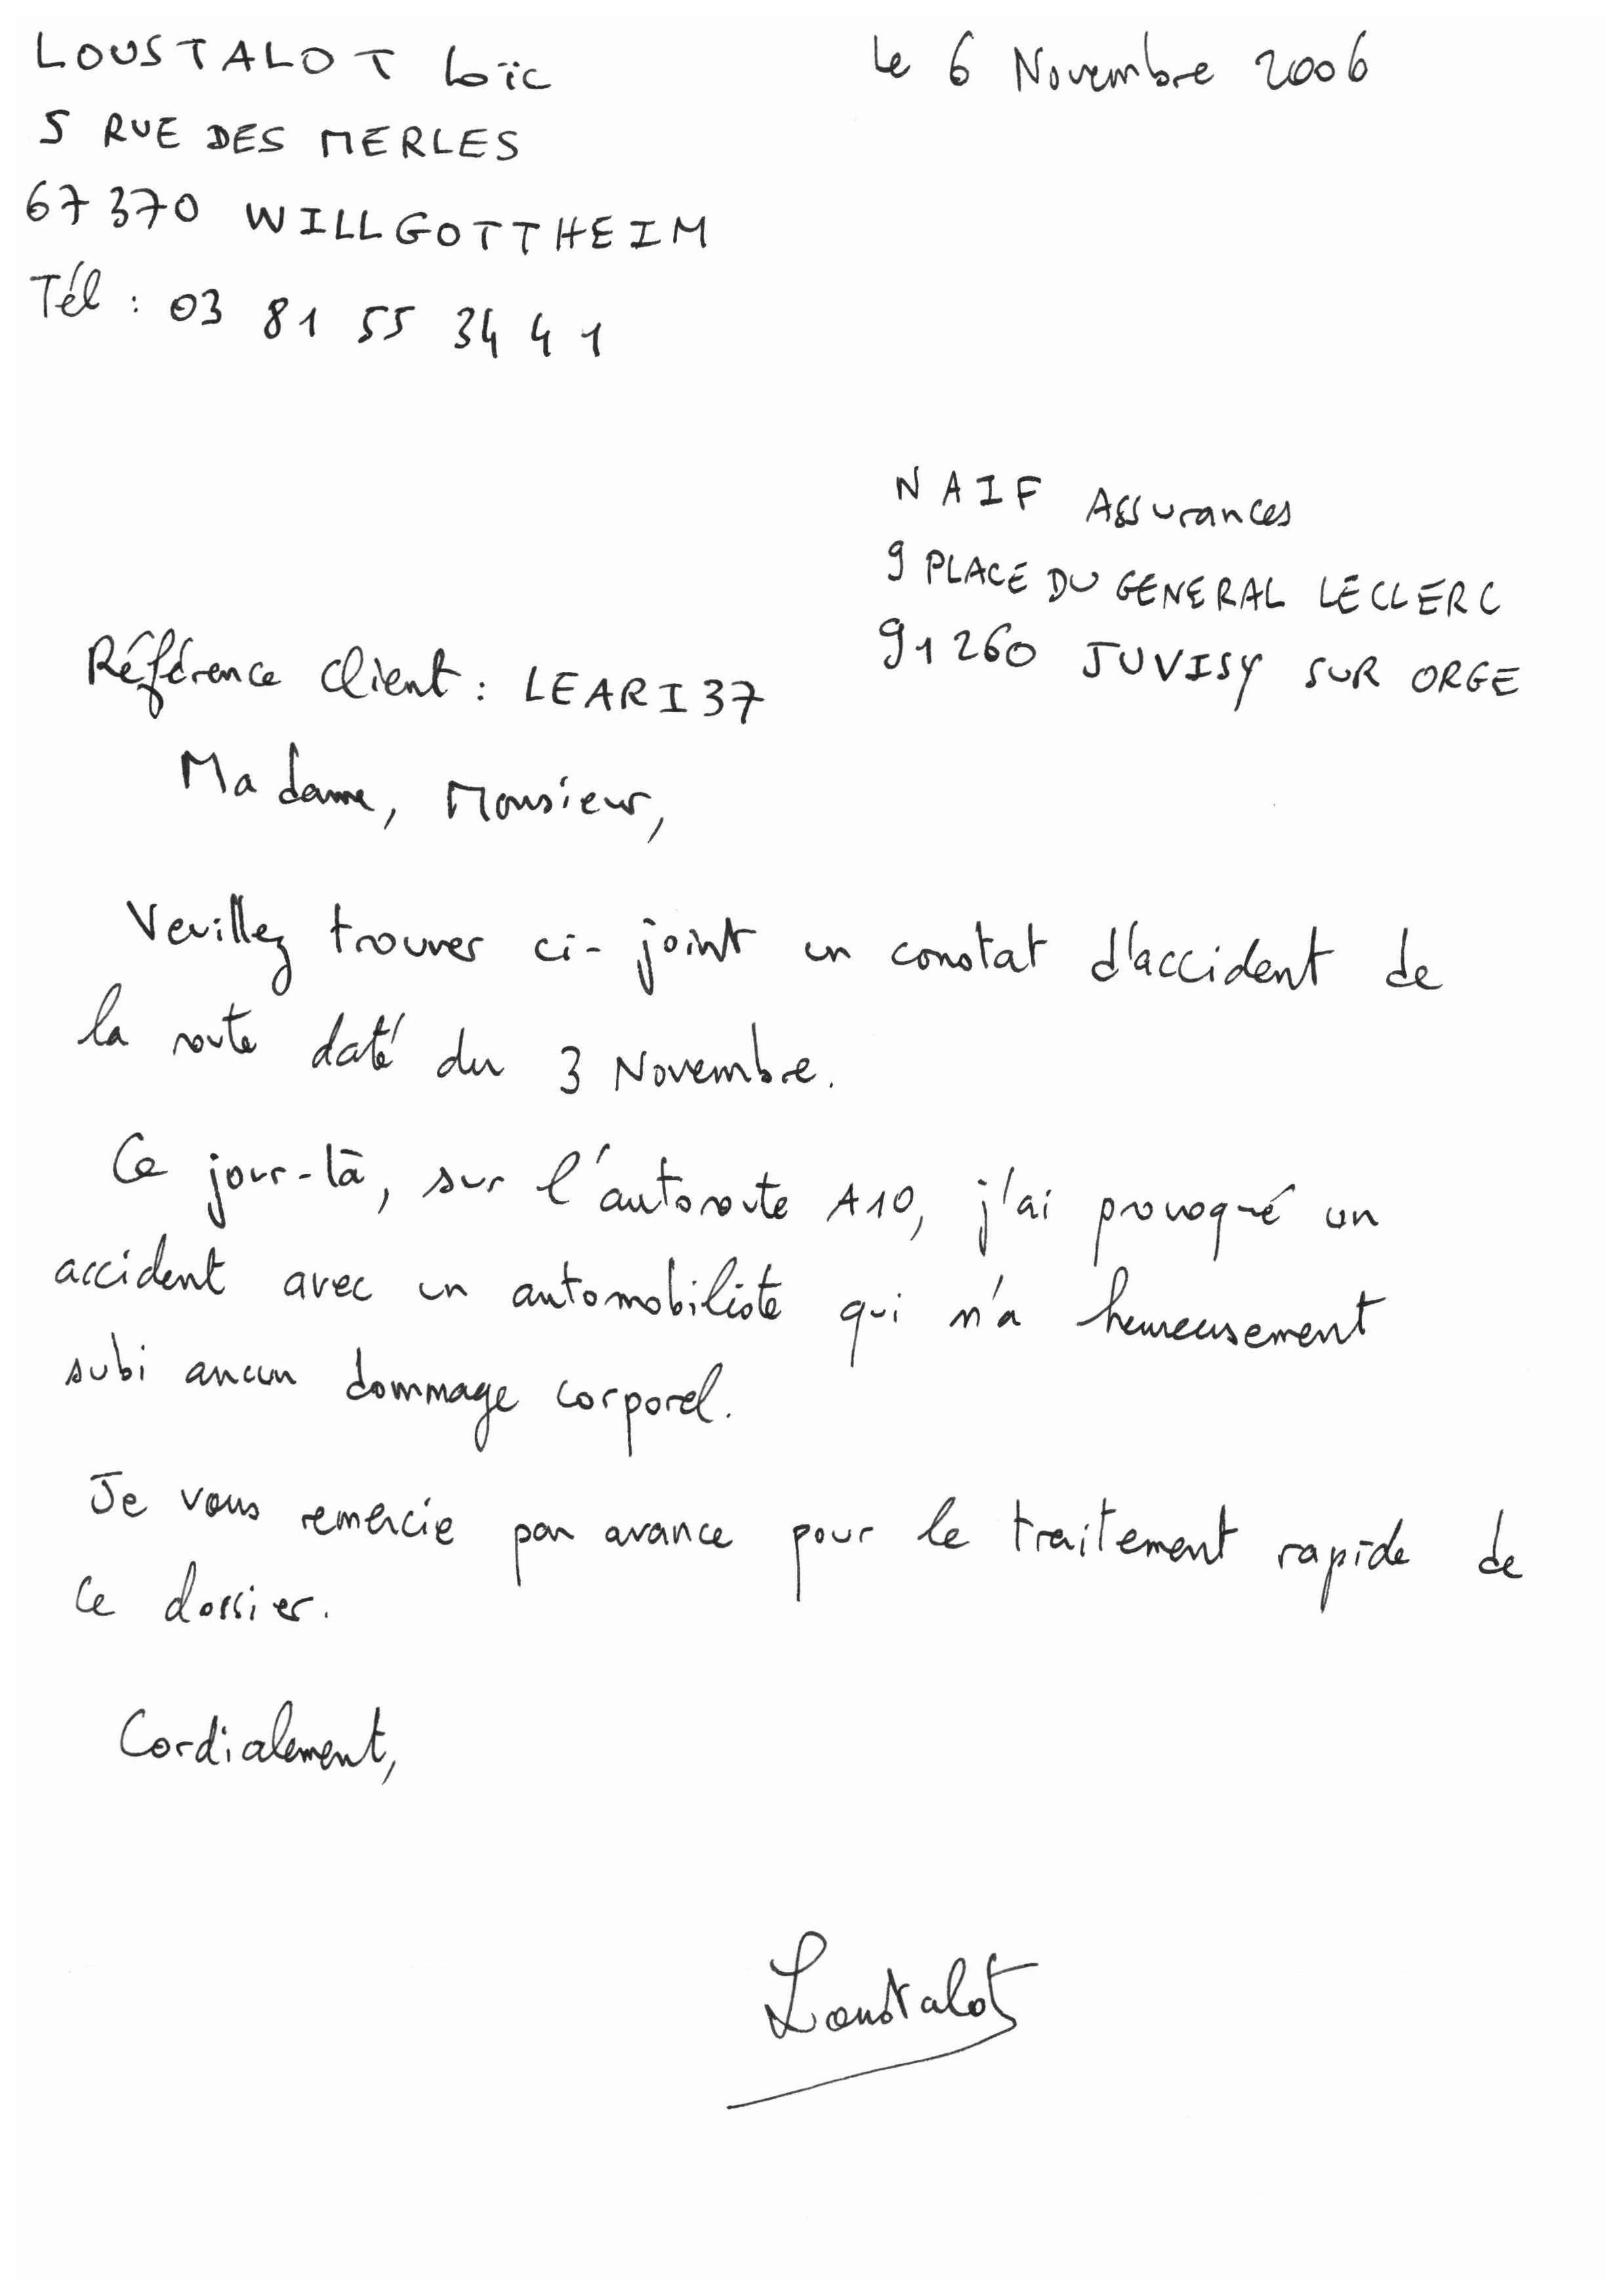 LOUSTALOT Loïc
Le 6 Novembre 2006
5 RUE DES MERLES
67370 WILLGOTTHEIM
Tél : 03 81 55 34 41
NAIF Assurances
9 PLACE DU GENERAL LECLERC
91260 JUVISY SUR ORGE
Référence Client : LEARI37
Madame, Monsieur,
Veuillez trouver ci-joint un constat d'accident de
la route daté du 3 Novembre.
Ce jour-là, sur l'autoroute A10, j'ai provoqué un
accident avec un automobiliste qui n'a heureusement
subi aucun dommage corporel.
Je vous remercie par avance pour le traitement rapide de
ce dossier.
Cordialement,
Loustalot